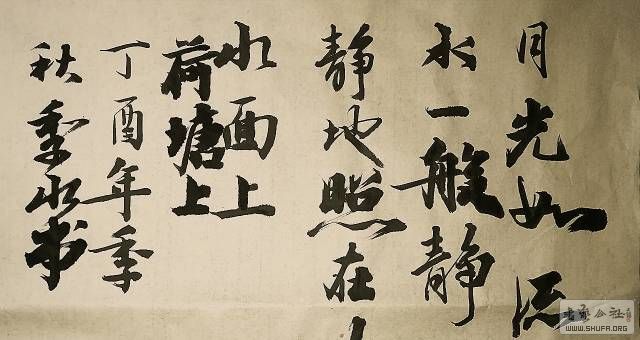 月光如流
水一般静
静地照在
水面上
荷塘上
丁酉年季
秋水书
公社
WWW.SHUFA.ORG